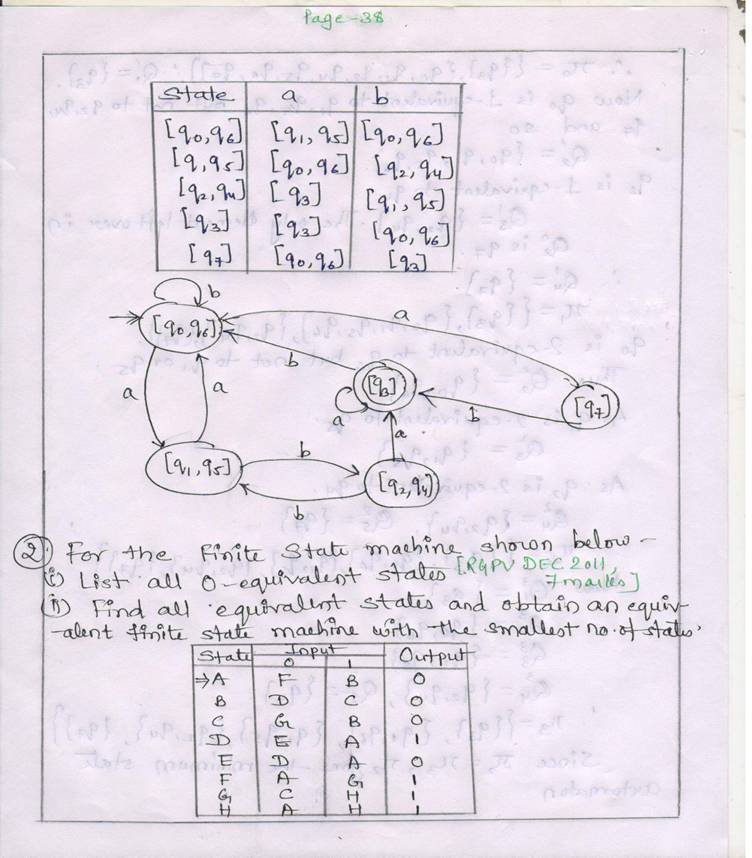 Page-38
State a b
[q0,q6] [q1,q5] [q0,q6]
[q1,q5] [q0,q6] [q2,q4]
[q2,q4] [q3] [q1,q5]
[q3] [q3] [q0,q6]
[q7] [q0,q6] [q3]
b
[q0,q6]
a
b
[q3]
a a
a
b
[q7]
a
[q1,q5]
b
[q2,q4]
b
2. For the Finite State machine shown below -
(i) List all 0-equivalent states [RGPV DEC 2011,
7 marks]
(ii) Find all equivalent states and obtain an equiv-
-alent finite state machine with the smallest no. of states.
State Input Output
0 1
⇒A F B 0
B D C 0
C G B 0
D E A 1
E D A 0
F A G 1
G C H 1
H A H 1